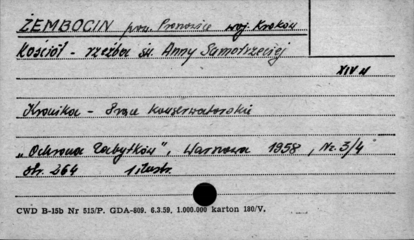 ŻEMBOCIN pow. Proszowice woj. Kraków
Kościół - rzeźba św. Anny Samotrzeciej
XIV w
Kronika - Prace konserwatorskie
„Ochrona Zabytków", Warszawa 1958, Nr. 3/4
str. 264 1 ilustr.
CWD B-15b Nr 515/P. GDA-809. 6.3.59. 1.000.000 karton 180/V.